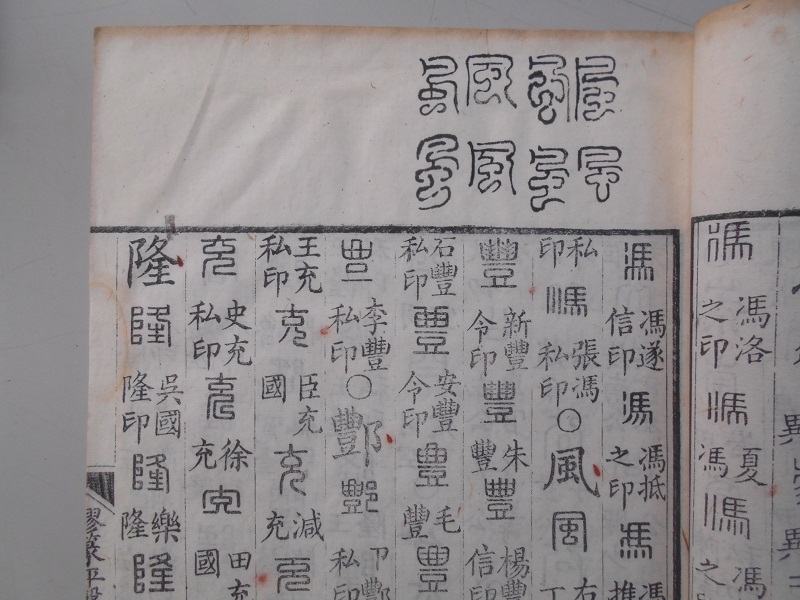 馮 馮洛之印 馮 夏馮 馮 馮之
風風風風風風風風
馮 馮遂信印 馮 馮抵之印 馮 馮推
私印 馮 張馮私印 〇 風 風 右
豐 新豐令印 豐 朱豐 豐 楊豐信印
石豐私印 豐 安豐令印 豐 毛豐 豐
豐 李豐私印 〇 酆 酆 酆私印
王充私印 充 臣充國 充 減充 充
充 史充私印 充 徐充 充 田充國
隆 隆 吳國隆印 隆 樂隆 隆
繆篆分韻